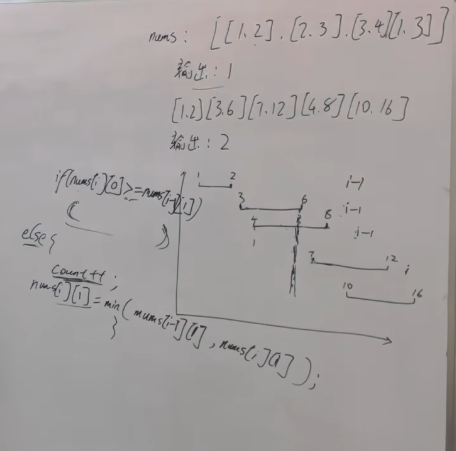 nums: [[1,2],[2,3],[3,4][1,3]]
输出: 1
[1,2][3,6][7,12][4,8][10,16]
输出: 2
if(nums[i][0]>=nums[i-1][1])
else{
count++;
nums[i][1]=min(nums[i-1][1],nums[i][1]);
}
1 2 i-1
3 6 i-1
8 i-1
1
7 12 i
10 16